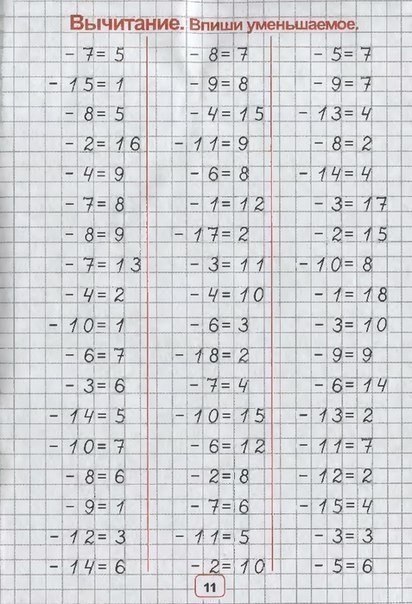 Вычитание. Впиши уменьшаемое.
- 7 = 5 - 8 = 7 - 5 = 7
- 15 = 1 - 9 = 8 - 9 = 7
- 8 = 5 - 4 = 15 - 13 = 4
- 2 = 16 - 11 = 9 - 8 = 2
- 4 = 9 - 6 = 8 - 14 = 4
- 7 = 8 - 1 = 12 - 3 = 17
- 8 = 9 - 17 = 2 - 2 = 15
- 7 = 13 - 3 = 11 - 10 = 8
- 4 = 2 - 4 = 10 - 1 = 18
- 10 = 1 - 6 = 3 - 3 = 10
- 6 = 7 - 18 = 2 - 9 = 9
- 3 = 6 - 7 = 4 - 6 = 14
- 14 = 5 - 10 = 15 - 13 = 2
- 10 = 7 - 6 = 12 - 11 = 7
- 8 = 6 - 2 = 8 - 12 = 2
- 9 = 1 - 7 = 6 - 15 = 4
- 12 = 3 - 11 = 5 - 3 = 3
- 14 = 6 - 2 = 10 - 5 = 6
11